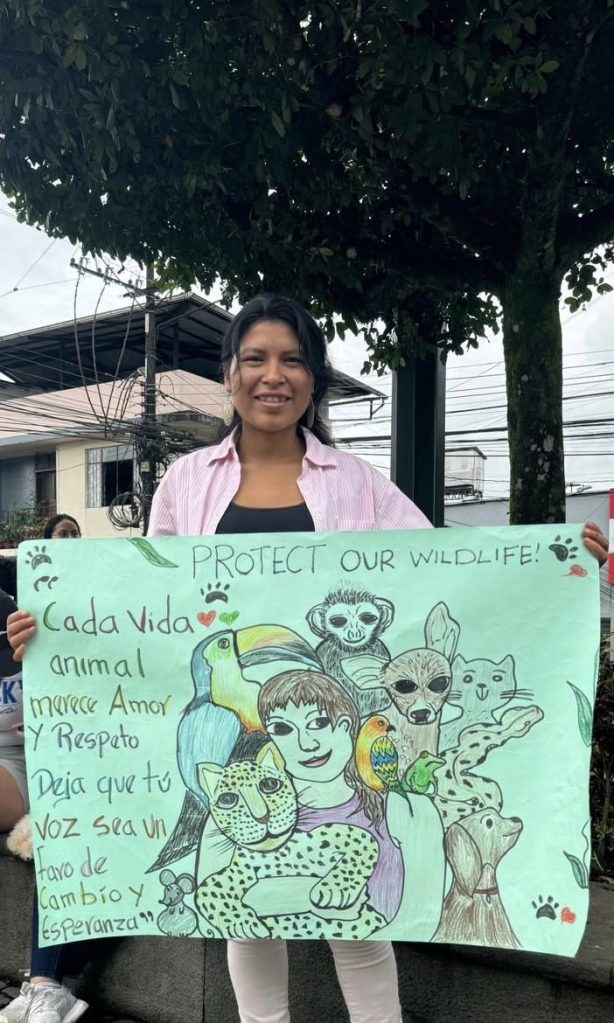 PROTECT OUR WILDLIFE!
"Cada Vida
animal
merece Amor
Y Respeto
Deja que tú
voz sea un
faro de
Cambio y
Esperanza"